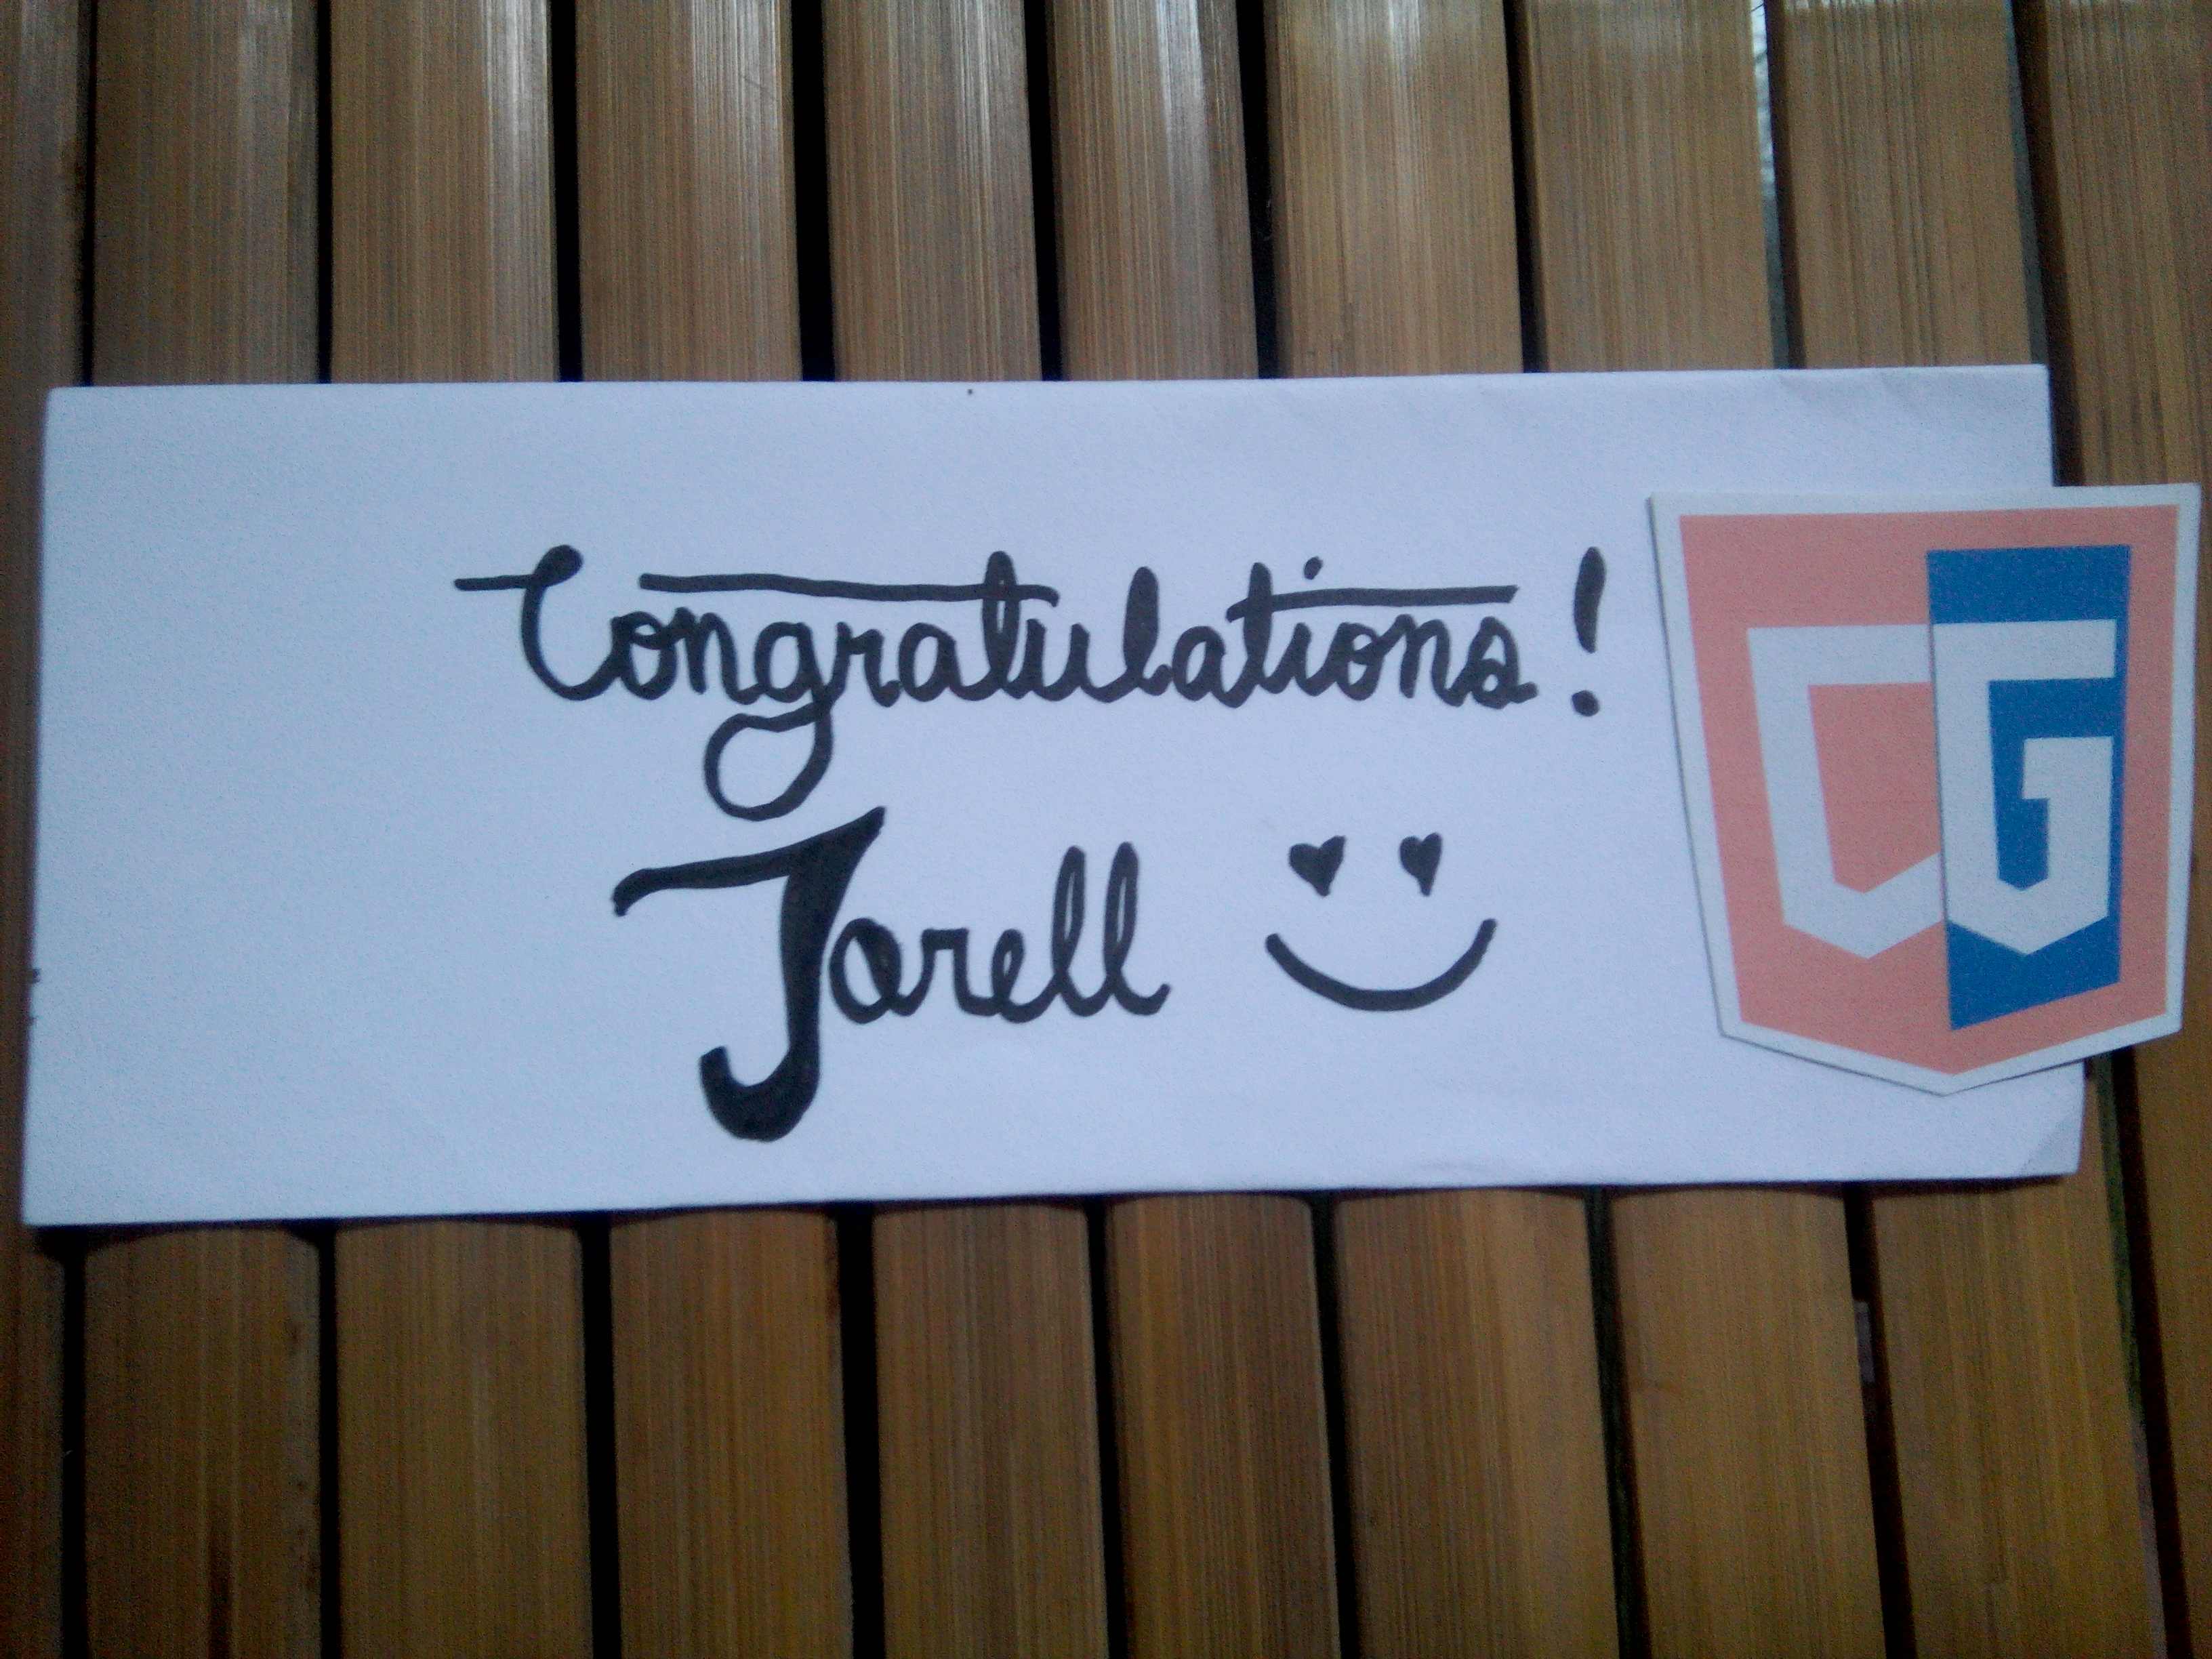 Congratulations!
Jorell
CG